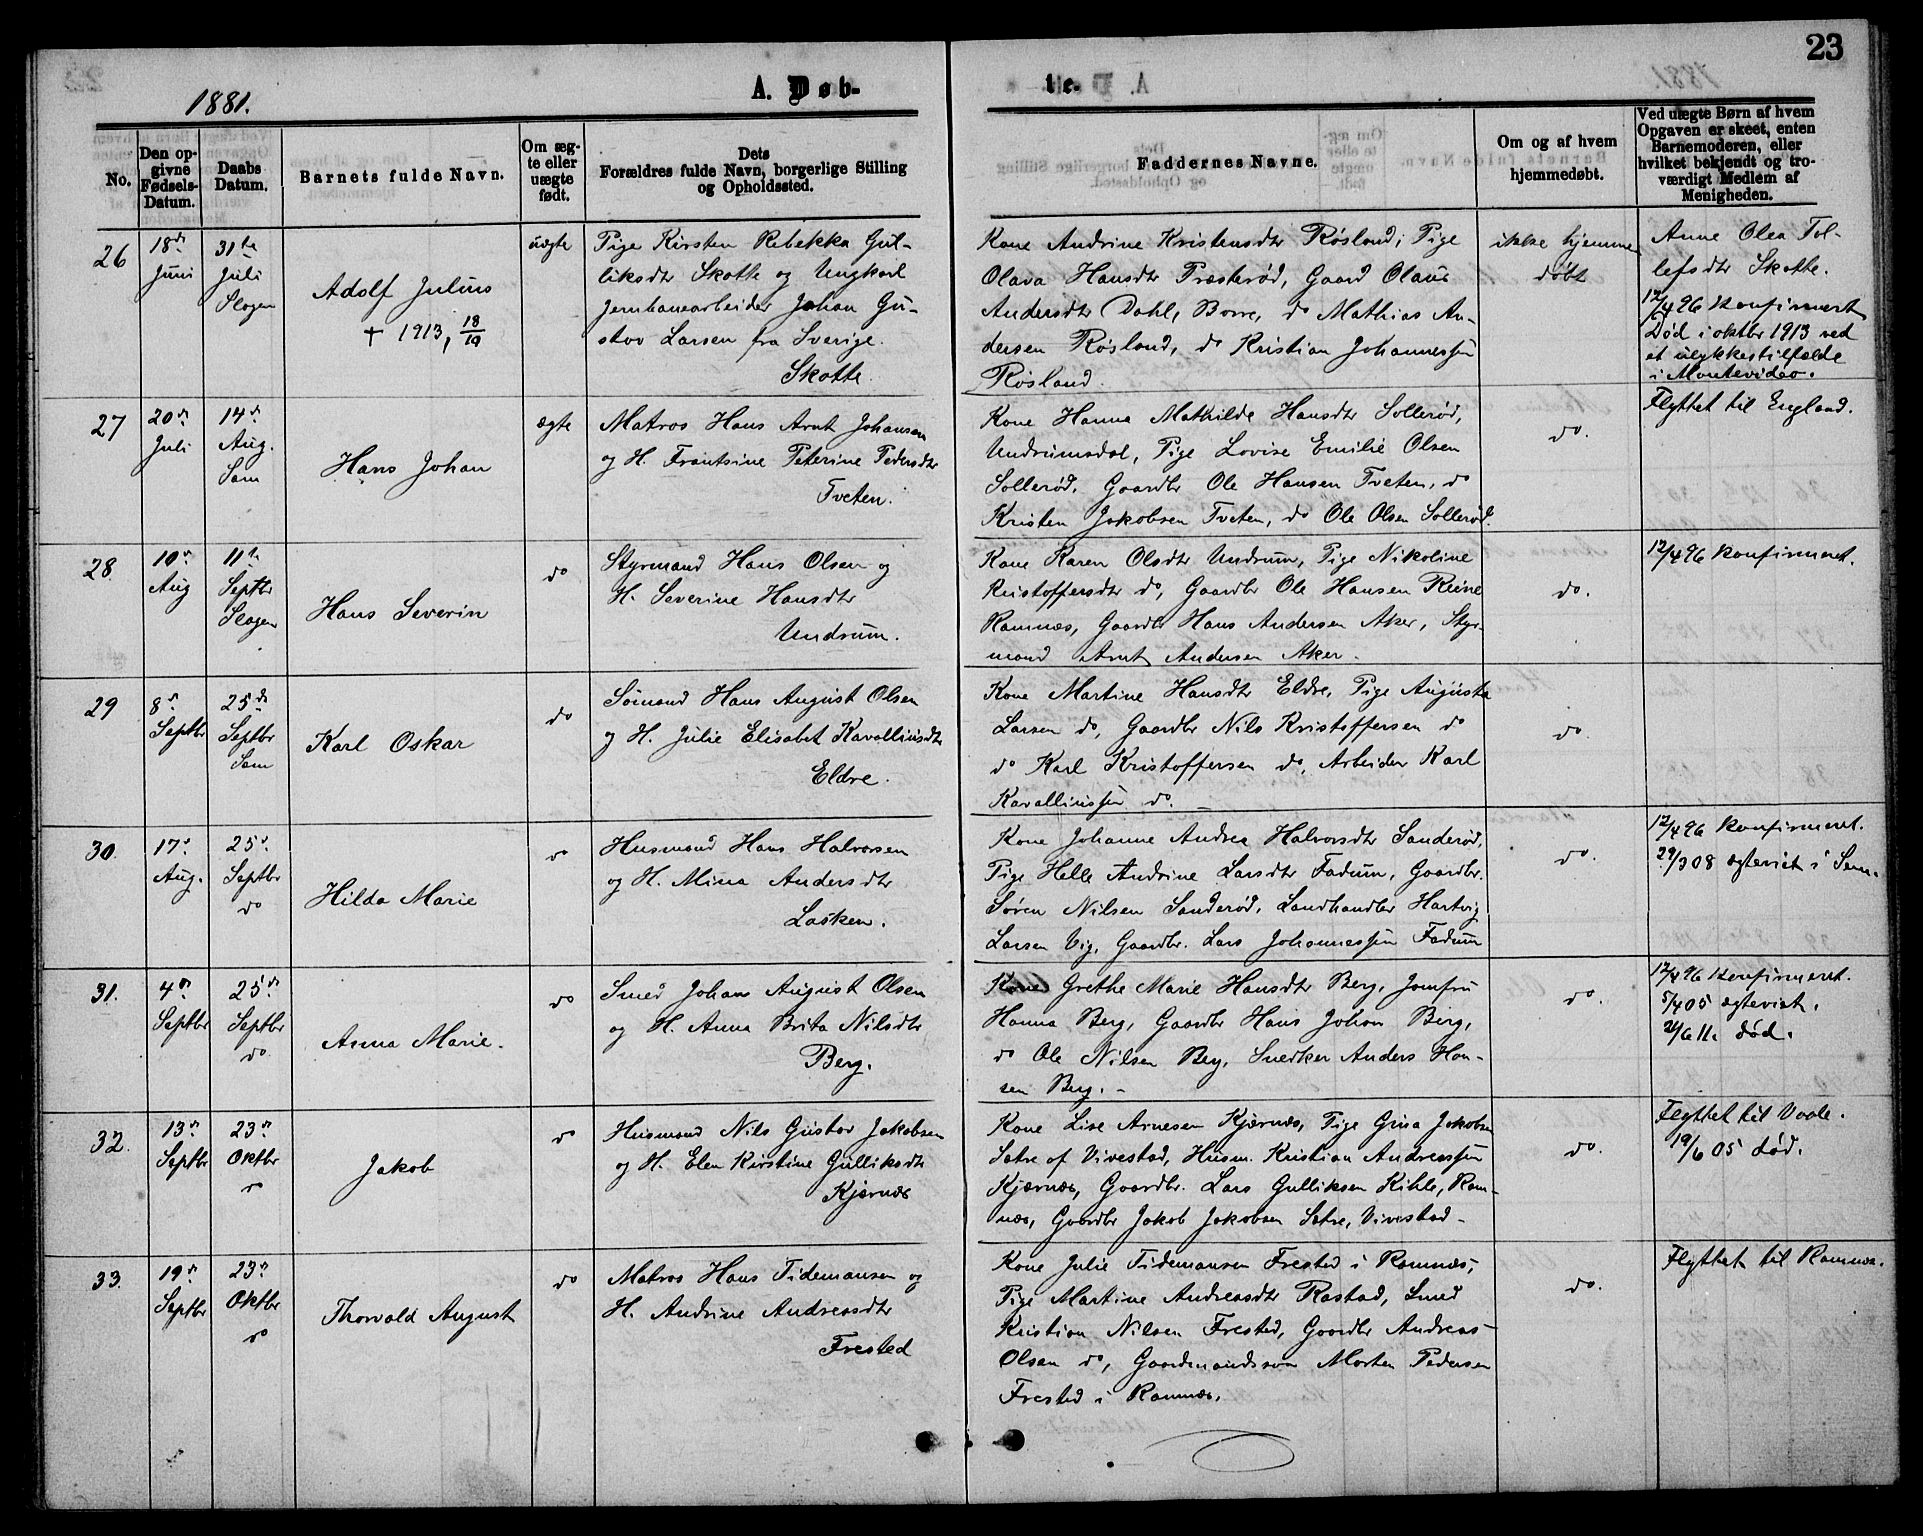 23
1881.
A. Døb-
te.
No.
Den op-
givne
Fødsels-
Datum.
Daabs
Datum.
Barnets fulde Navn.
Om æg-
te eller
uægte
født.
Dets
Forældres fulde Navn, borgerlige Stilling
og Opholdssted.
Faddernes Navne.
Om og af hvem
hjemmedøbt.
Ved uægte Børn af hvem
Opgaven er skeet, enten
Barnemoderen, eller
hvilket bekjendt og tro-
værdigt Medlem af
Menigheden.
26
18de
Juni
31te
Juli
Slagen
Adolf Julius
+ 1913, 18/10
uægte
Pige Kirsten Rebekka Gul-
liksdtr Skotte og Ungkarl
Jernbanearbeider Johan Gu-
stav Larsen fra Sverige.
Skotte.
Kone Andrine Kristensdtr Røsland; Pige
Olava Hansdtr Præsterød, Gaard Olaus
Andersdtr Dahl, Borre, do Mathias An-
dersen Røsland, do Kristian Johannessen
Røsland.
ikke hjemme
døbt
Anne Olea Tol-
lefsdtr Skotte.
12/4 96 konfirmeret
Død i oktbr 1913 ved
et ulykkestilfælde
i Montevideo.
27
20de
Juli
14de
Aug.
Sam
Hans Johan
ægte
Matros Hans Arnt Johansen
og H. Frantsine Peterine Pedersdtr
Tveten.
Kone Hanna Mathilde Hansdtr Sollerød,
Undrumsdal, Pige Lovise Emilie Olsen
Sollerød, Gaardbr Ole Hansen Tveten, do
Kristen Jakobsen Tveten, do Ole Olsen Sollerød.
do.
Flyttet til England.
28
10de
Aug
11te
Septbr
Slagen
Hans Severin
do
Styrmand Hans Olsen og
H. Severine Hansdtr
Undrum.
Kone Karen Olsdtr Undrum, Pige Nikoline
Kristoffersdtr do, Gaardbr Ole Hansen Reine
Ramnæs, Gaardbr Hans Andersen Aker, Styr-
mand Arnt Andersen Aker.
do.
12/4 96 konfirmeret.
29
8de
Septbr
25de
Septbr
Sam
Karl Oskar
do
Sømand Hans August Olsen
og H. Julie Elisabet Kavalliusdtr
Eldre.
Kone Martine Hansdtr Eldre, Pige Augusta
Larsen do, Gaardbr Nils Kristoffersen do
do Karl Kristoffersen do, Arbeider Karl
Kavalliussen do.
do.
30.
17de
Aug.
25de
Septbr
do
Hilda Marie
do
Husmand Hans Halvorsen
og H. Mina Andersdtr
Lasken.
Kone Johanne Andrea Halvorsdtr Sanderød,
Pige Helle Andrine Larsdtr Fadum, Gaardbr.
Søren Nilsen Sanderød, Landhandler Hartvig
Larsen Vig, Gaardbr. Lars Johannessen Fadum
do.
12/4 96 konfirmeret.
29/3 08 ægteviet i Sem.
31.
4de
Septbr
25de
Septbr
do
Anna Marie.
do
Smed Johan August Olsen
og H. Anna Brita Nilsdtr
Berg.
Kone Grethe Marie Hansdtr Berg, Jomfru
Hanna Berg, Gaardbr Hans Johan Berg,
do Ole Nilsen Berg, Snedker Anders Han-
sen Berg. -
do.
12/4 96 konfirmeret.
5/4 05 ægteviet.
24/6 11. død.
32.
13de
Septbr
23de
Oktbr
do
Jakob
do
Husmand Nils Gustav Jakobsen
og H. Elen Kirstine Gulliksdtr
Kjærnæs
Kone Lise Arnesen Kjærnæs, Pige Grina Jakobsen
Satre af Vivestad, Husm. Kristian Andreassen
Kjærnæs, Gaardbr. Lars Gulliksen Kihle, Ram-
næs, Gaardbr Jakob Jakobsen Satre, Vivestad -
do.
Flyttet til Vaale.
19/6 05 død.
33.
19de
Septbr
23de
Oktbr
do
Thorvald August
do
Matros Hans Tidemansen og
H. Andrine Andreasdtr
Frested
Kone Julie Tidemansen Frested i Ramnæs,
Pige Martine Andreasdtr Rastad, Smed
Kristian Nilsen Frested, Gaardbr Andreas
Olsen do, Gaardmandssøn Morten Pedersen
Frested i Ramnæs.
do.
Flyttet til Ramnæs.